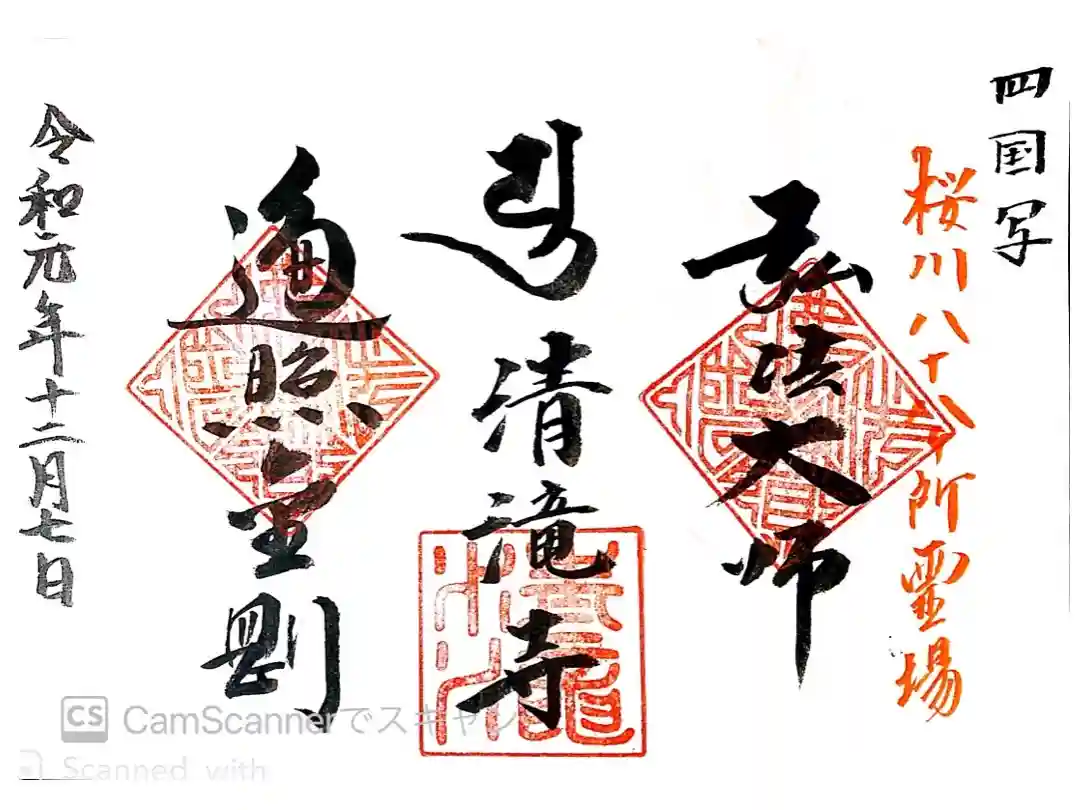 四国写
桜川八十八ヶ所霊場
弘法大師
清滝寺
遍照金剛
令和元年十二月七日
CS CamScannerでスキャン
Scanned with